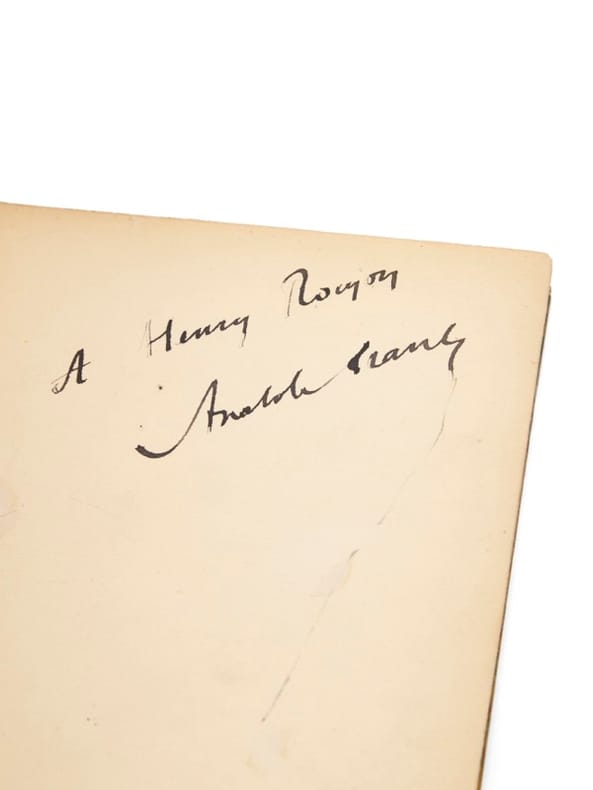 A Henry Roujon
Anatole France